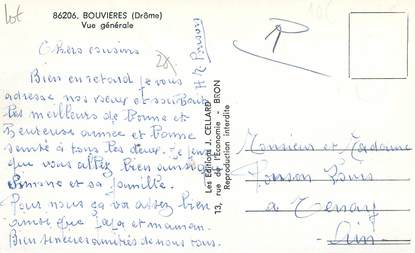 lot
86206. BOUVIERES (Drôme)
Vue générale
Chers cousins
Bien en retard je vous
adresse nos voeux et souhaits
les meilleurs de Bonne et
heureuse année et bonne
santé à tous les deux. Je pense
que vous allez bien ainsi que
Simone et sa famille.
Pour nous ça va assez bien
ainsi que et maman.
Bien sincères amitiés de nous tous.
Les Editions J. CELLARD
13, rue de l'Economie - BRON
Reproduction interdite
Monsieur et Madame
Ponson Louis
à Tenay
Ain